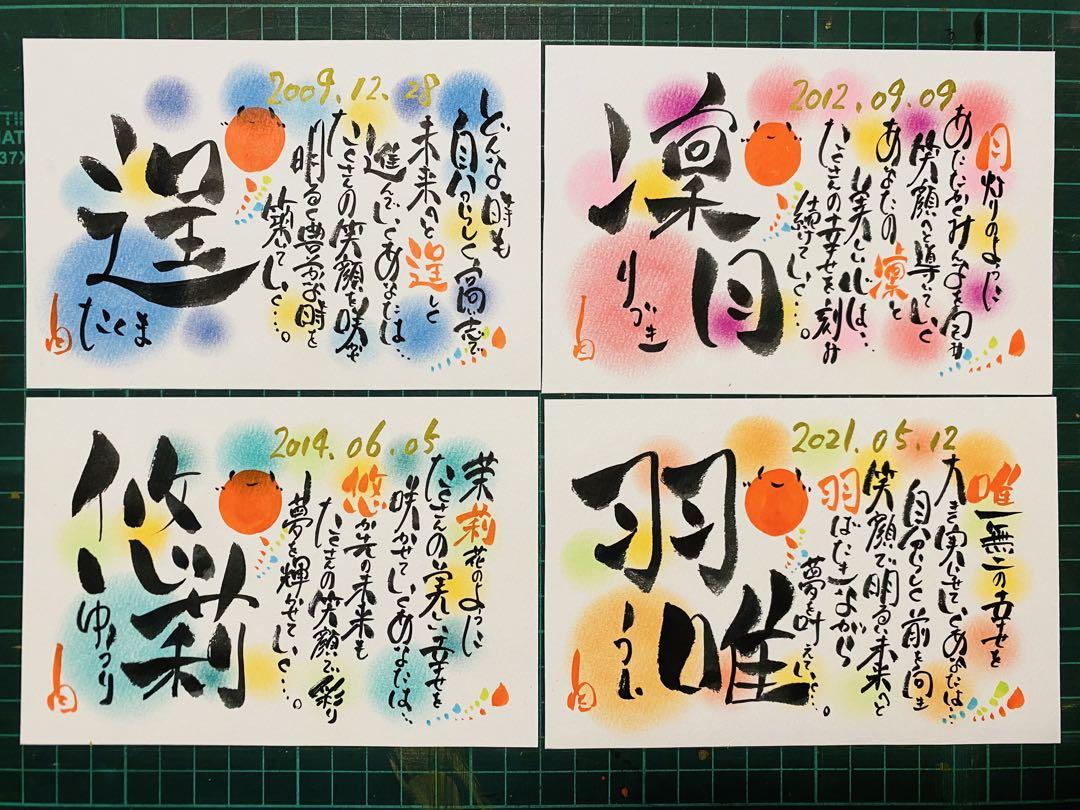 2009.12.28
逞
たくま
どんな時も
自分らしく高い志で
未来へと逞しく
進んでいくあなたは…
たくさんの笑顔を咲かせ
明るく豊かな時を
築いていく…。
2012.09.09
凜月
りづき
月灯りのように
あたたかくみんなを包み
笑顔へと導いていく
あなたの凜と
美しい心は、
たくさんの幸せを刻み
続けていく…。
2014.06.05
悠莉
ゆうり
茉莉花のように
たくさんの美しい幸せを
咲かせていくあなたは…
悠か先の未来も
たくさんの笑顔で彩り
夢を輝かせていく…。
2021.05.12
羽唯
うい
唯一無二の幸せを
大きく実らせていくあなたは…
自分らしく前を向き
笑顔で明るい未来へと
羽ばたきながら
夢を叶えていく…。